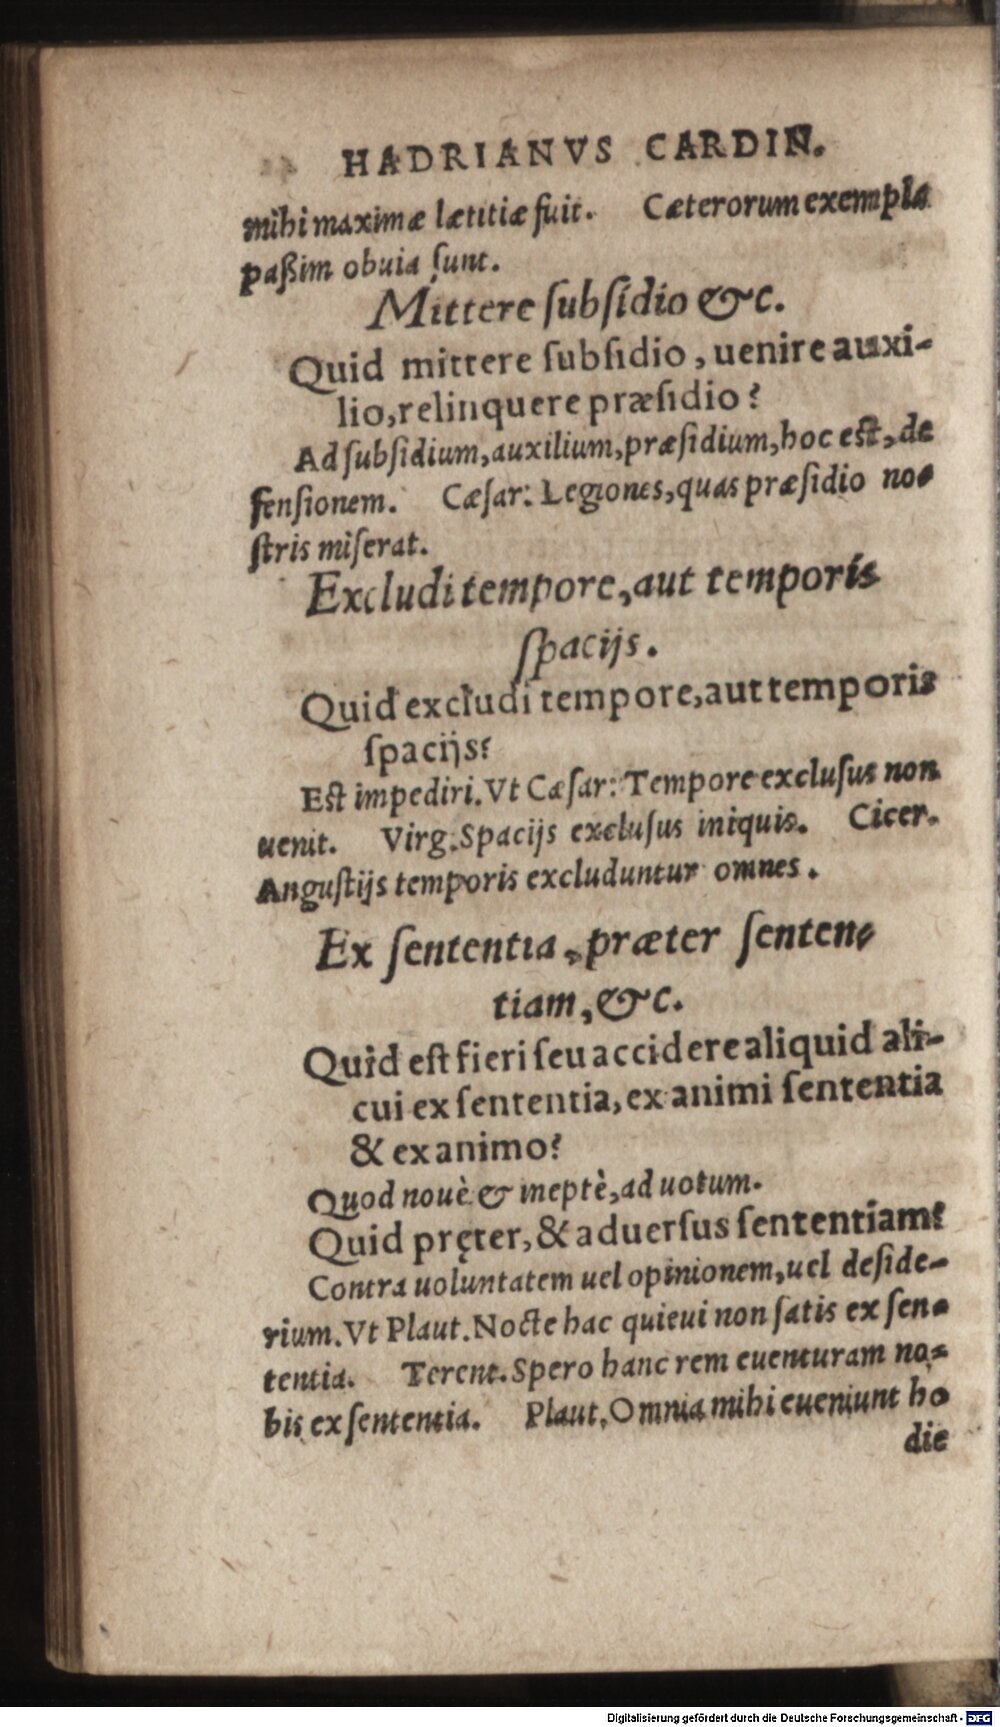 HADRIANVS CARDIN.
mihi maximæ lætitiæ fuit. Cæterorum exempla
paßim obuia sunt.
Mittere ſubſidio &c.
Quid mittere ſubſidio, uenire auxi-
lio, relinquere præſidio?
Ad ſubſidium, auxilium, præſidium, hoc eſt, de
fenſionem. Cæſar: Legiones, quas præſidio no-
ſtris miſerat.
Excludi tempore, aut temporis
ſpacijs.
Quid excludi tempore, aut temporis
ſpacijs?
Eſt impediri. Vt Cæſar: Tempore excluſus non
uenit. Virg: Spacijs excluſus iniquis. Cicer.
Anguſtijs temporis excluduntur omnes.
Ex ſententia, præter ſenten-
tiam, &c.
Quid eſt fieri ſeu accidere aliquid ali-
cui ex ſententia, ex animi ſententia
& ex animo?
Quod nouè & ineptè, ad uotum.
Quid pręter, & aduerſus ſententiam?
Contra uoluntatem uel opinionem, uel deſide-
rium. Vt Plaut. Nocte hac quieui non ſatis ex ſen-
tentia. Terent. Spero hanc rem euenturam no-
bis ex ſententia. Plaut. Omnia mihi eueniunt ho
die
Digitalisierung gefördert durch die Deutsche Forschungsgemeinschaft - DFG